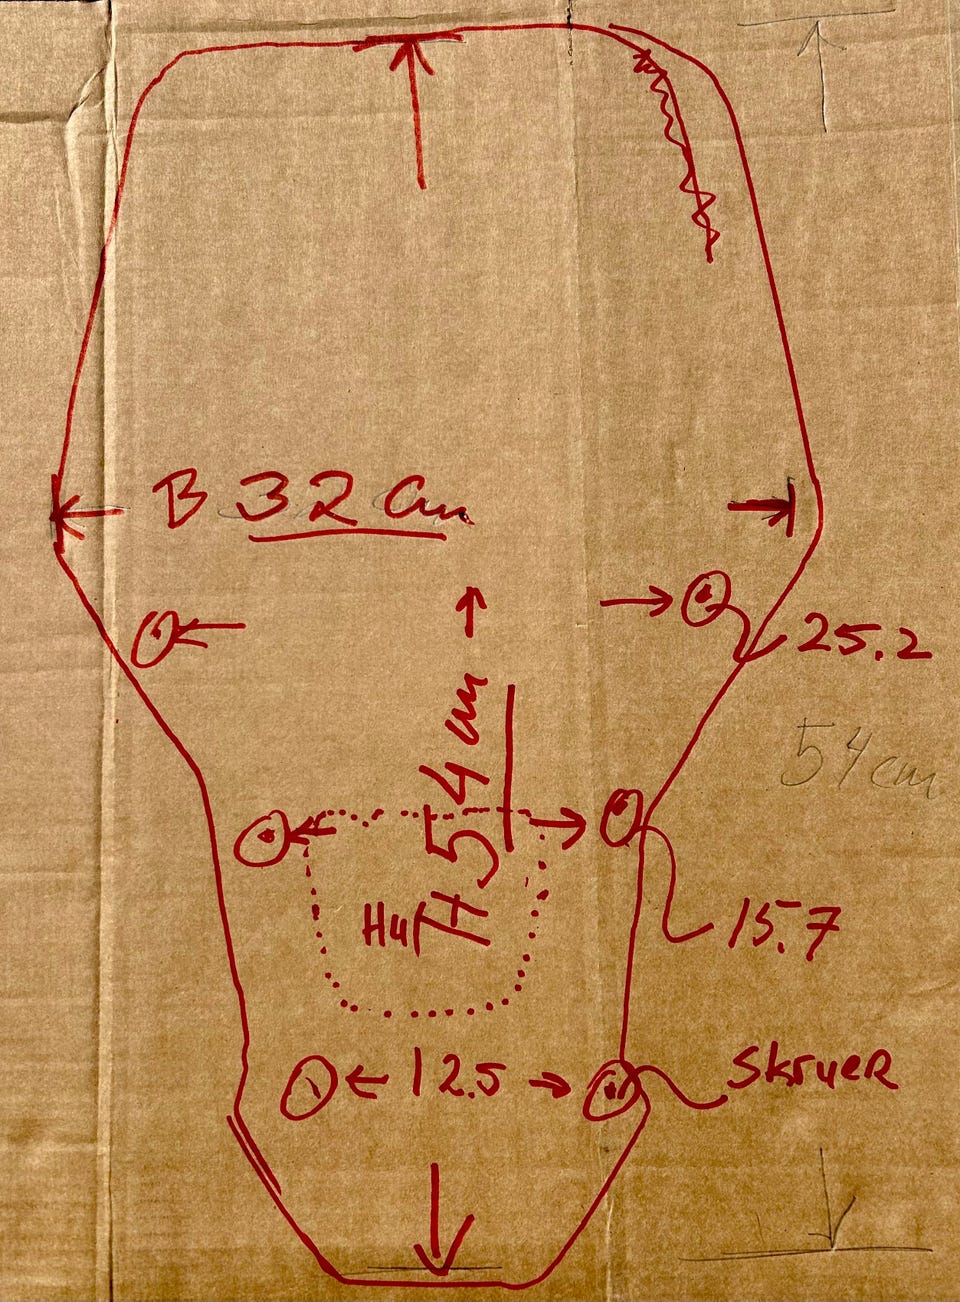 B 32 cm
25.2
H 54 cm
54 cm
Hu
15.7
12.5
skruer